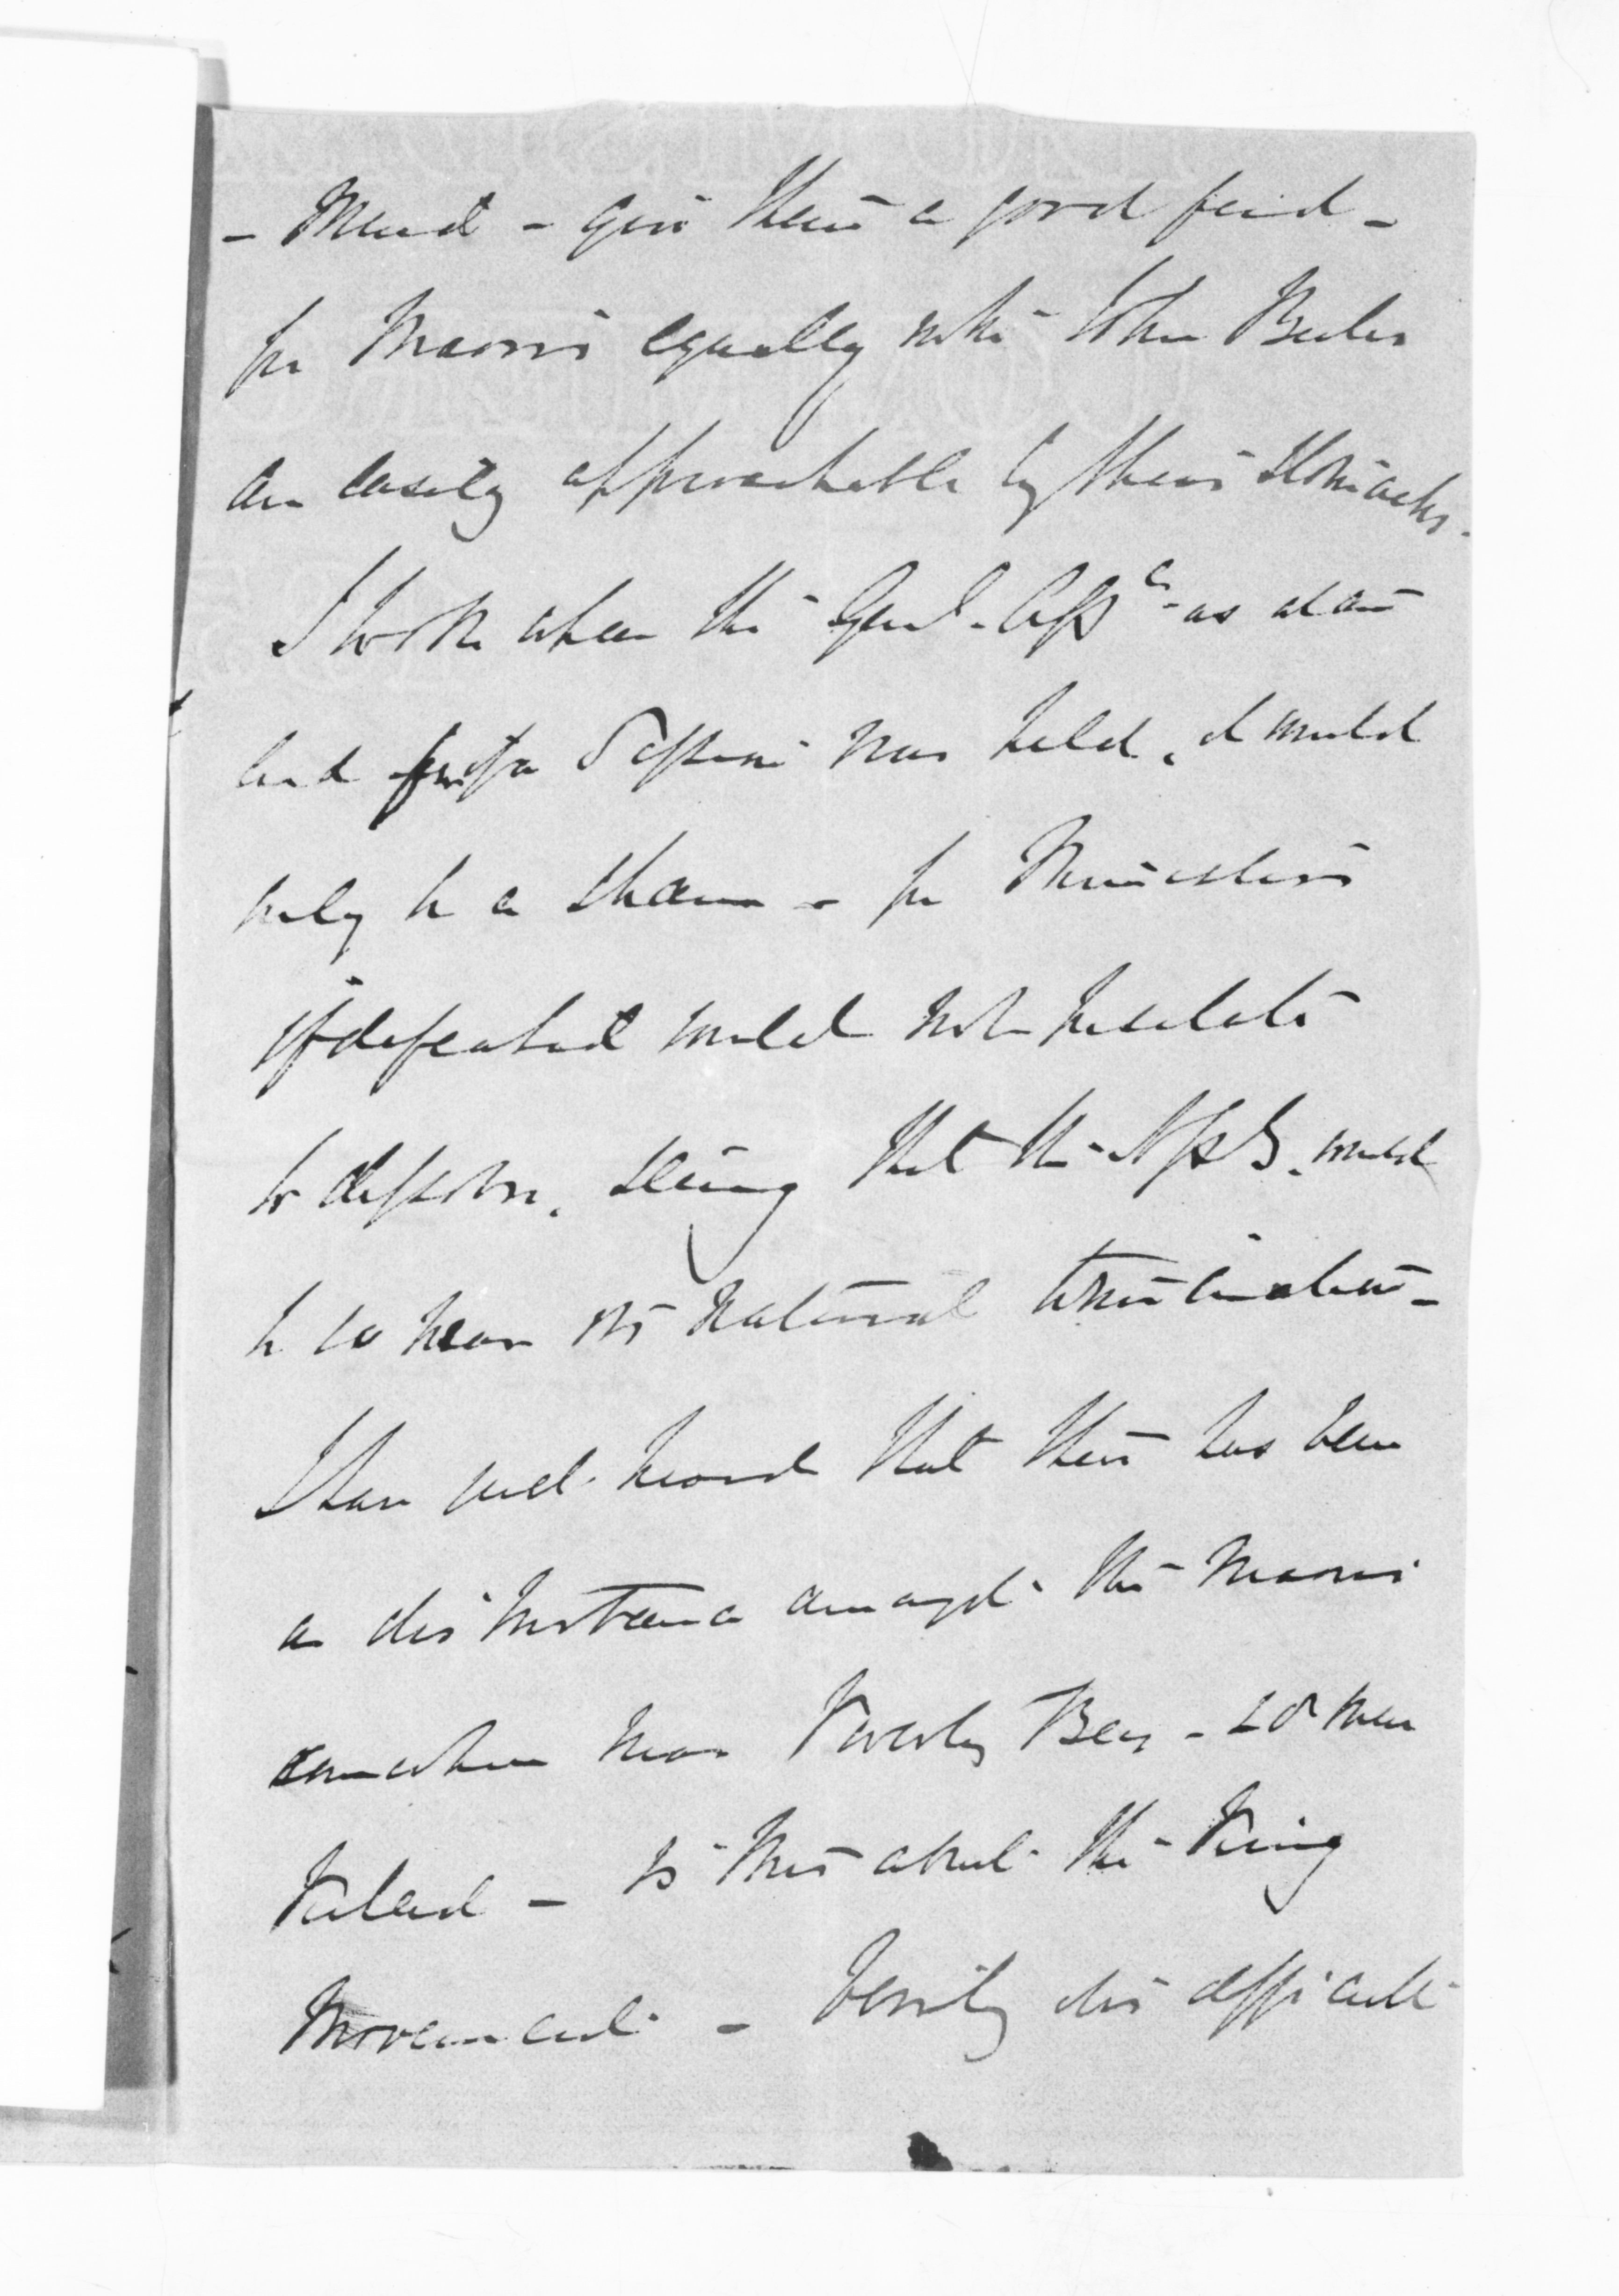 - ment - give them a good feed -
for Maoris equally with John Bulls
are easily approachable by their stomachs.
I wrote when the Genl. Assc. as
and Session was held, it would
only be a sham - for Ministers
if defeated would not hesitate
to dissolve, seeing that the would
be so near its natural termination -
I have just heard that there has been
a disturbance amongst the Maoris
somewhere near Poverty Bay - 20 men
killed - Is this about the King
Movement - Verily this difficult